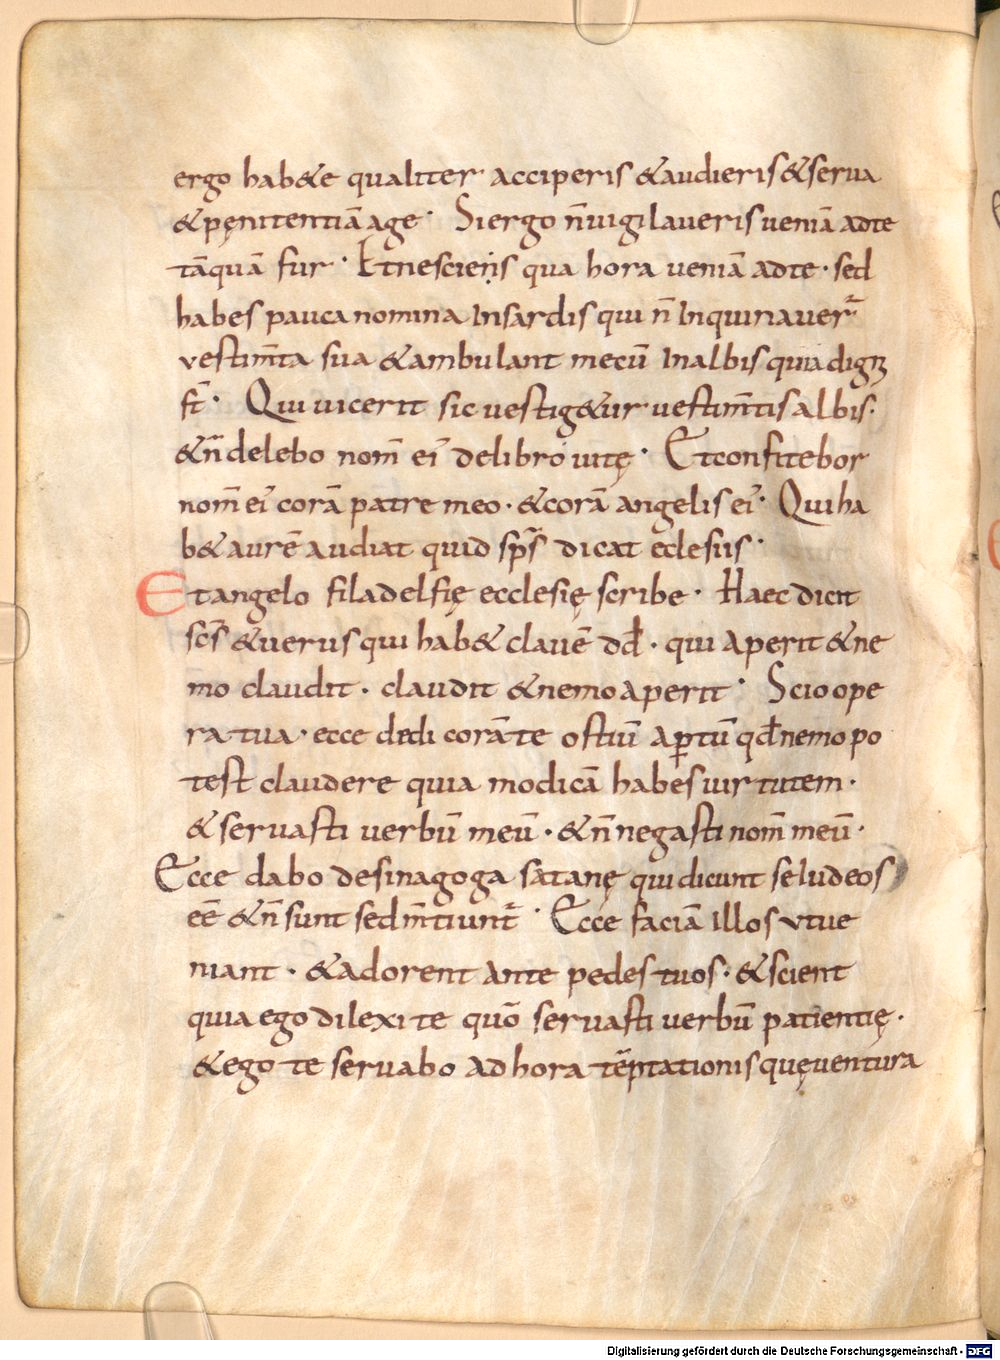 ergo hab&e qualiter acciperis &audieris &serva
&pęnitentiā age · Si ergo n̄ vigilaveris veniā adte
tāquā fur · Et nesciens qua hora veniā adte · sed
habes pauca nomina Insardis qui n̄ Inquinaver̄
vestim̄ta sua &ambulant mecū Inalbis quia digni
st̄ · Qui vicerit sic vestig&ur vestim̄tis albis ·
&n̄ delebo nom̄ ei' delibro vitę · Et confitebor
nom̄ ei' corā patre meo · &corā angelis ei' · Qui ha
b& aurē audiat quid sp̄s dicat eclesiis ·
Et angelo filadelfię ecclesię scribe · Haec dicit
sc̄s &verus qui hab& clavē dd̄ · qui aperit &ne
mo claudit · claudit &nemo aperit · Scio ope
ra tua · ecce dedi corā te ostiū aꝑtū qđ nemo po
test claudere quia modicā habes virtutem ·
&servasti verbū meū · &n̄ negasti nom̄ meū ·
Ecce dabo desinagoga satanę qui dicunt se Iudeos
eē &n̄ sunt sed m̄tiunt᷒ · Ecce faciā illos ut ve
niant · &adorent ante pedes tuos · &scient
quia ego dilexi te quō servasti verbū patientię ·
&ego te servabo ad hora tēptationis quę ventura
Digitalisierung gefördert durch die Deutsche Forschungsgemeinschaft - DFG